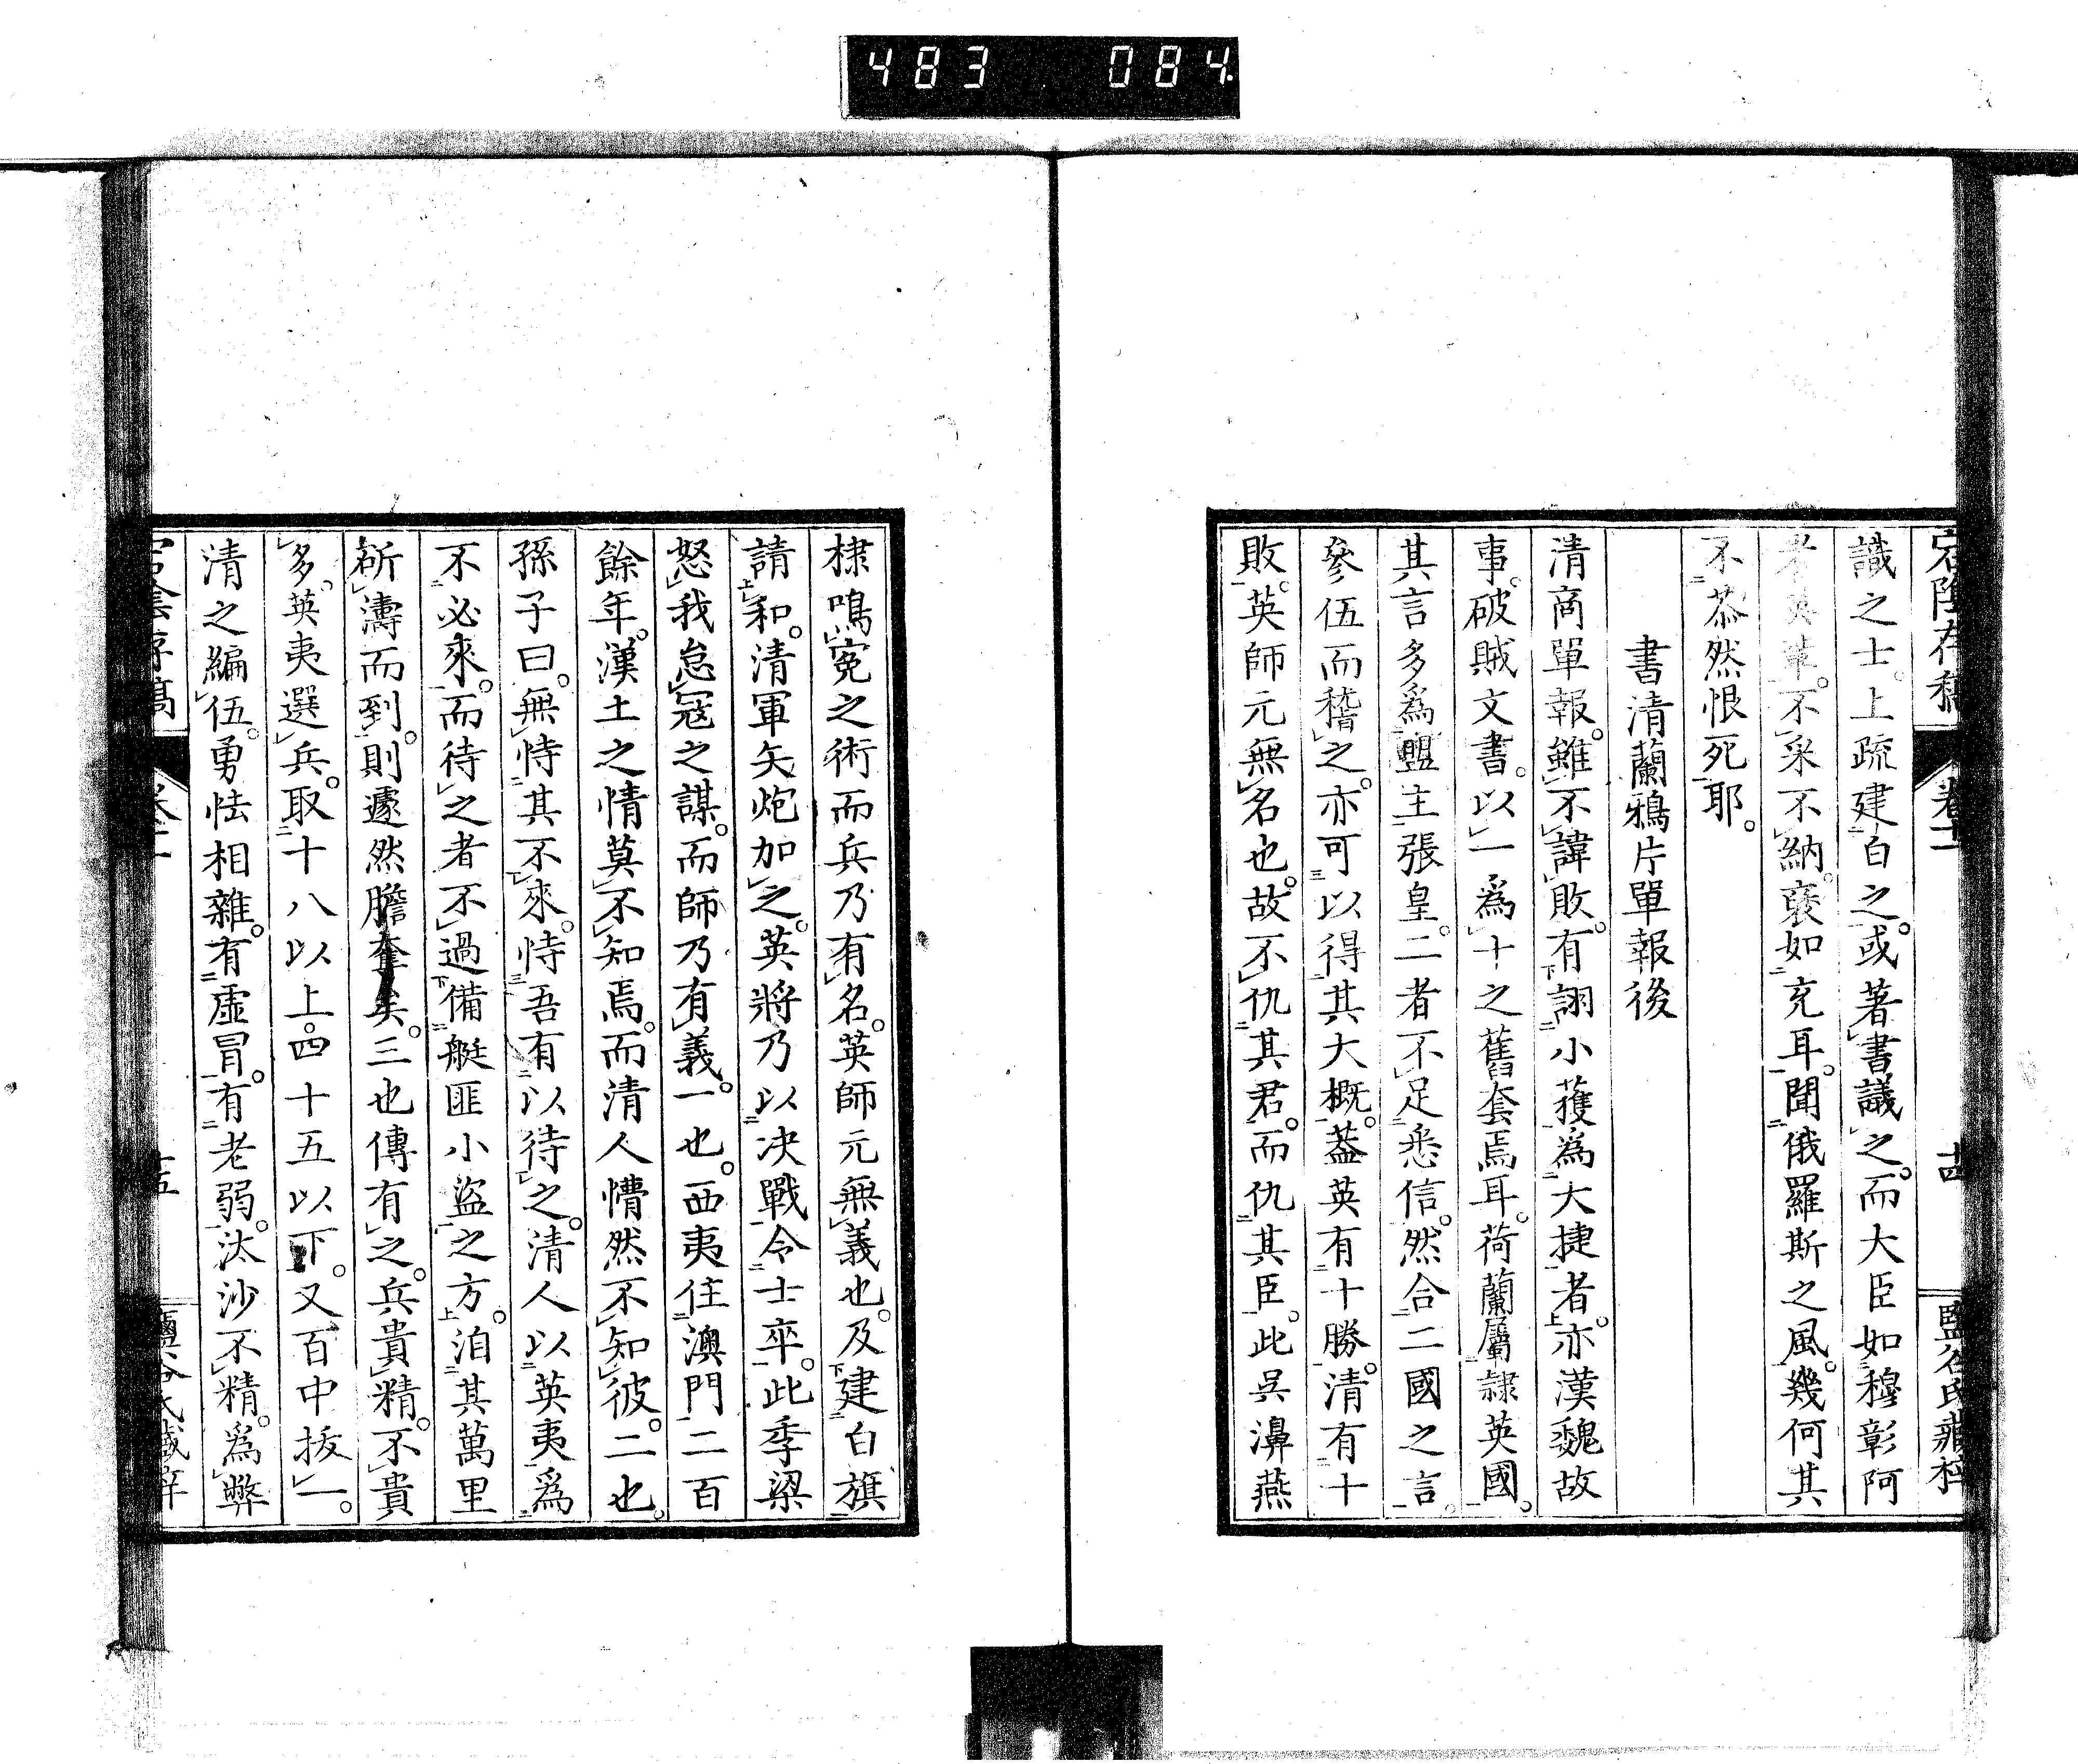 483 084
宕陰存稿 卷十一 十四 鹽谷氏藏梓
識之士。上疏建白之。或著書議之。而大臣如穆彰阿
者英輩。不采不納。褎如充耳。聞俄羅斯之風。幾何其
不恭然恨死耶。
書清蘭鴉片單報後
清商單報。雖不諱敗。有詡小獲為大捷者。亦漢魏故
事。破賊文書。以一為十之舊套焉耳。荷蘭屬隸英國。
其言多為盟主張皇。二者不足悉信。然合二國之言。
參伍而稽之。亦可以得其大概。蓋英有十勝。清有十
敗。英師元無名也。故不仇其君。而仇其臣。此吳濞燕
棣鳴冤之術而兵乃有名。英師元無義也。及建白旗
請和。清軍矢炮加之。英將乃以決戰令士卒。此季梁
怒我怠寇之謀。而師乃有義。一也。西夷住澳門二百
餘年。漢土之情莫不知焉。而清人懵然不知彼。二也。
孫子曰。無恃其不來。恃吾有以待之。清人以英夷為
不必來。而待之者不過備艇匪小盜之方。洎其萬里
斫濤而到。則遽然膽奪矣。三也傳有之。兵貴精。不貴
多。英夷選兵。取十八以上。四十五以下。又百中拔一。
清之編伍。勇怯相雜。有虛冒。有老弱。汰沙不精。為弊
宕陰存稿 卷十一 十五 鹽谷氏藏梓